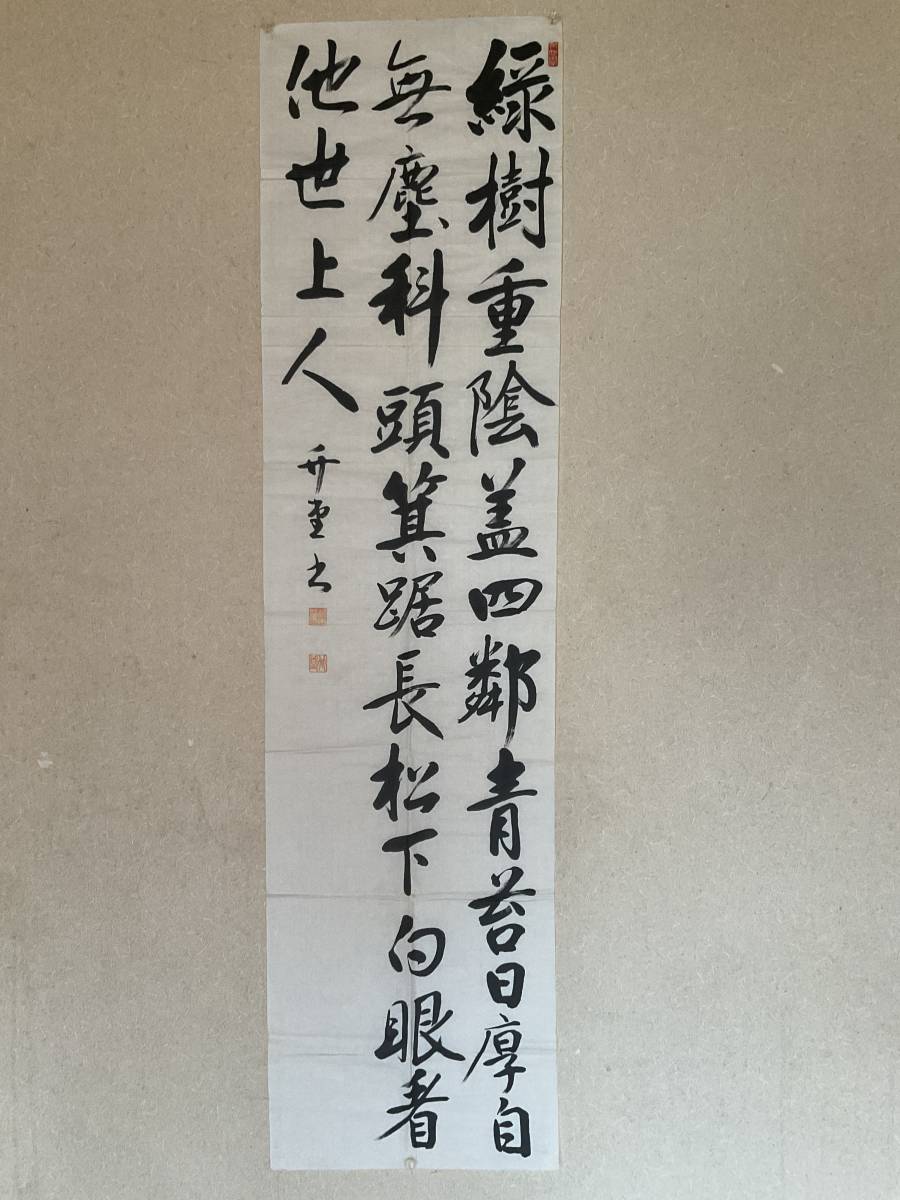 緑樹重陰盖四鄰青苔日厚自
無塵科頭箕踞長松下白眼看
他世上人
堂书